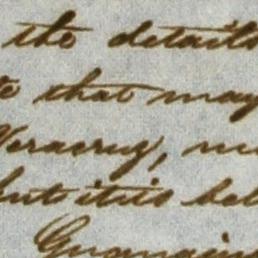 the details
that may
Veracruz, m
but it is bel